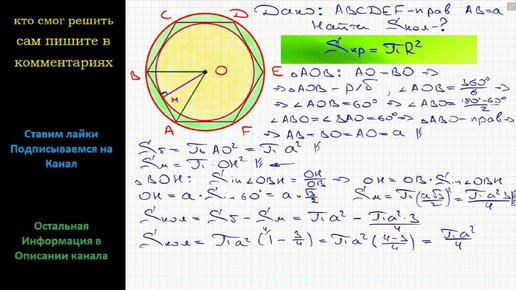 кто смог решить
сам пишите в
комментариях
Ставим лайки
Подписываемся на
Канал
Остальная
Информация в
Описании канала
C D
B O E
H
A F
Дано: ABCDEF-прав AB=a
Найти Sкол-?
Sкр = πR²
△AOB: AO=BO ⇒
⇒ △AOB - р/б, ∠AOB = 360°/6 ⇒
⇒ ∠AOB=60° ⇒ ∠ABO = (180°-60°)/2
∠ABO=∠BAO=60° ⇒ △ABO-прав ⇒
⇒ AB=BO=AO=a
Sб = π·AO² = πa²
Sм = π·OH²
△BOH: Sin∠OBH = OH/OB ⇒ OH = OB·Sin∠OBH
OH = a·Sin60° = a·√3/2 Sм = π(a√3/2)² = πa²·3/4
Sкол = Sб - Sм = πa² - πa²·3/4
Sкол = πa²(1 - 3/4) = πa²((4-3)/4) = πa²/4